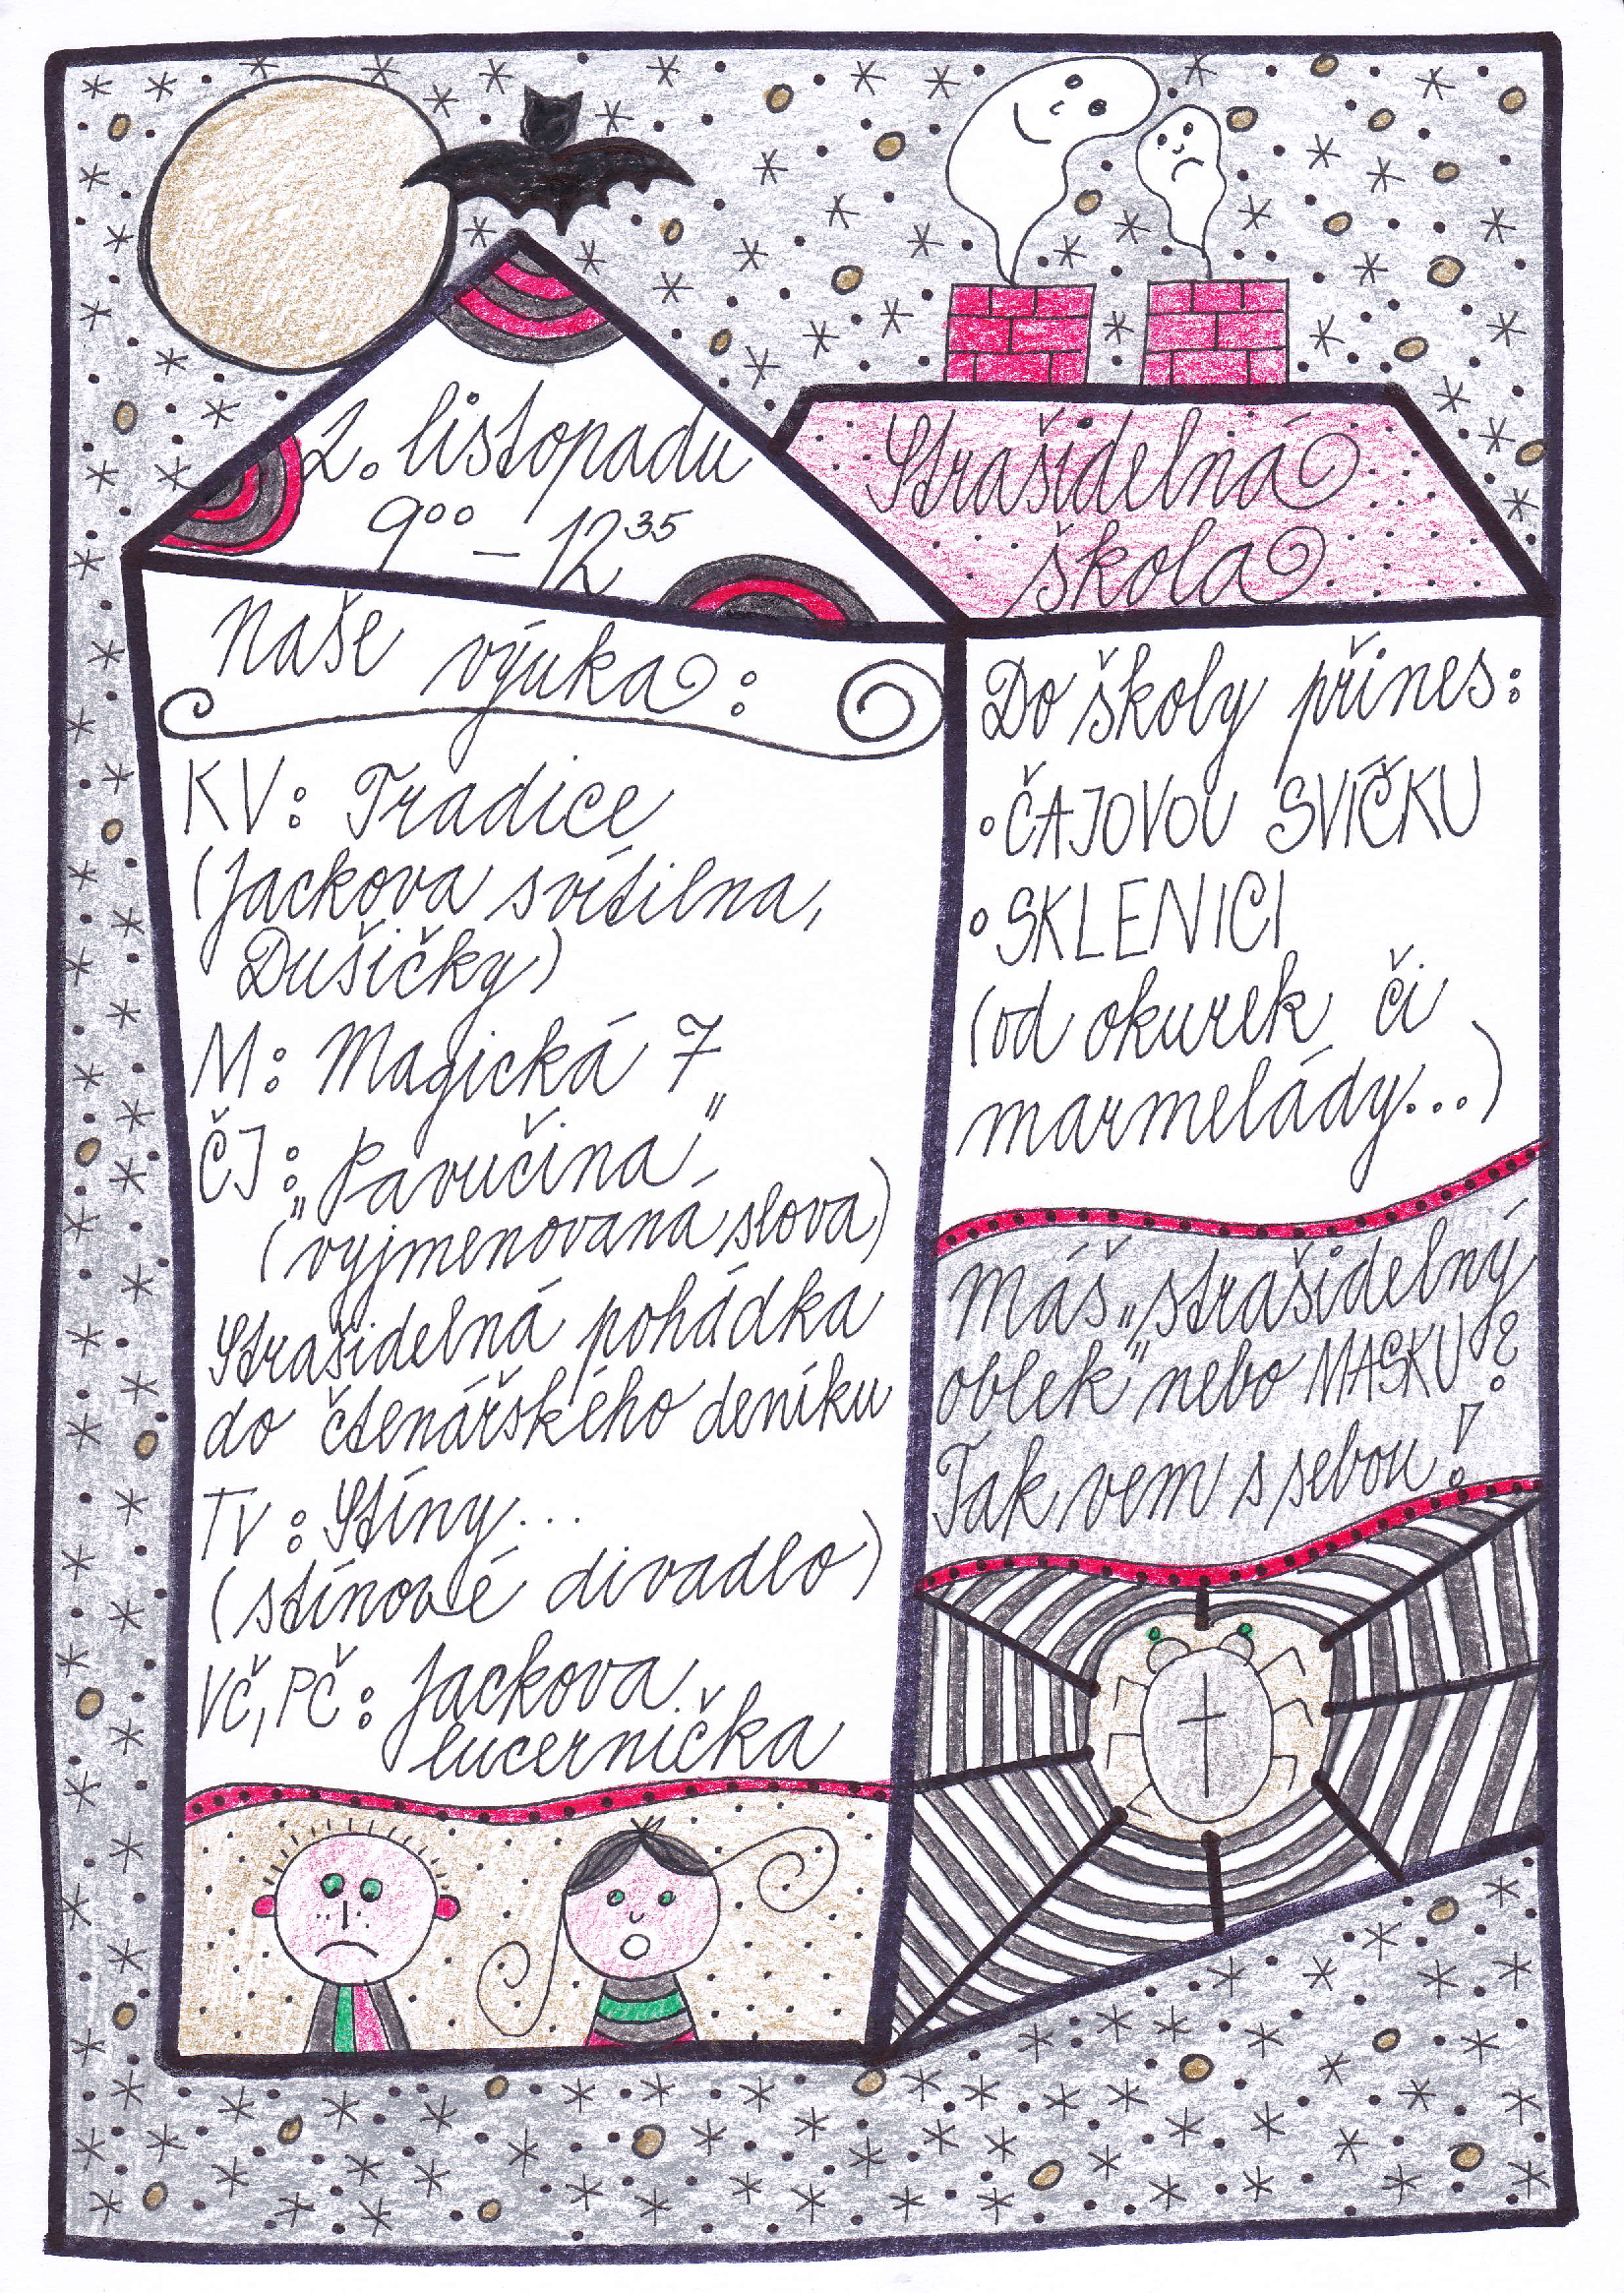 2. listopadu
9⁰⁰ – 12³⁵
Strašidelná
škola
Naše výuka:
KV: Tradice
(Jackova svítilna,
Dušičky)
M: Magická 7
ČJ: „Pavučina"
(vyjmenovaná slova)
Strašidelná pohádka
do čtenářského deníku
TV: Stíny...
(stínové divadlo)
VČ, PČ: Jackova
lucernička
Do školy přines:
• ČAJOVOU SVÍČKU
• SKLENICI
(od okurek či
marmelády...)
Máš „strašidelný
oblek" nebo MASKU?
Tak vem s sebou!